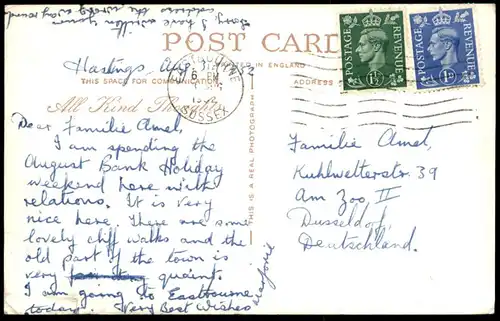 Sorry I have written
address the wrong way round
POST CARD
PRINTED IN ENGLAND
THIS SPACE FOR COMMUNICATION
ADDRESS
Hastings Aug 3rd 52
EASTBOURNE
6 PM
SUSSEX
POSTAGE REVENUE
1½D
POSTAGE REVENUE
1D
All Kind Thoughts
Dear Familie Amel,
I am spending the
August Bank Holiday
weekend here with
relations. It is very
nice here. There are some
lovely cliff walks and the
old part of the town is
very quaint.
I am going to Eastbourne
today. Very Best Wishes
Marjorie
THIS IS A REAL PHOTOGRAPH
Familie Amel,
Kuhlwetterstr 39
Am Zoo II
Dusseldorf,
Deutschland.